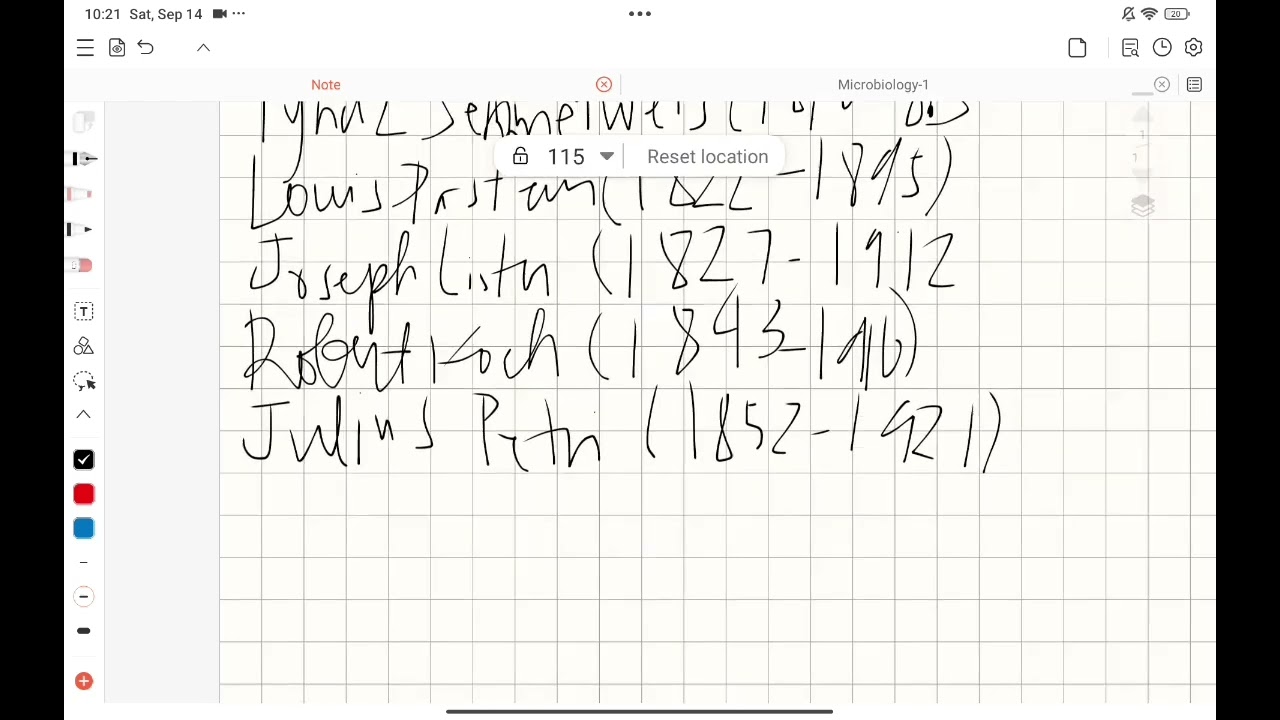 10:21 Sat, Sep 14
20
Note
Microbiology-1
115 Reset location
Louis
(1822-1895)
Joseph Listn (1827-1912
Robert Koch (1843-1910)
Julius Petn (1852-1921)
T